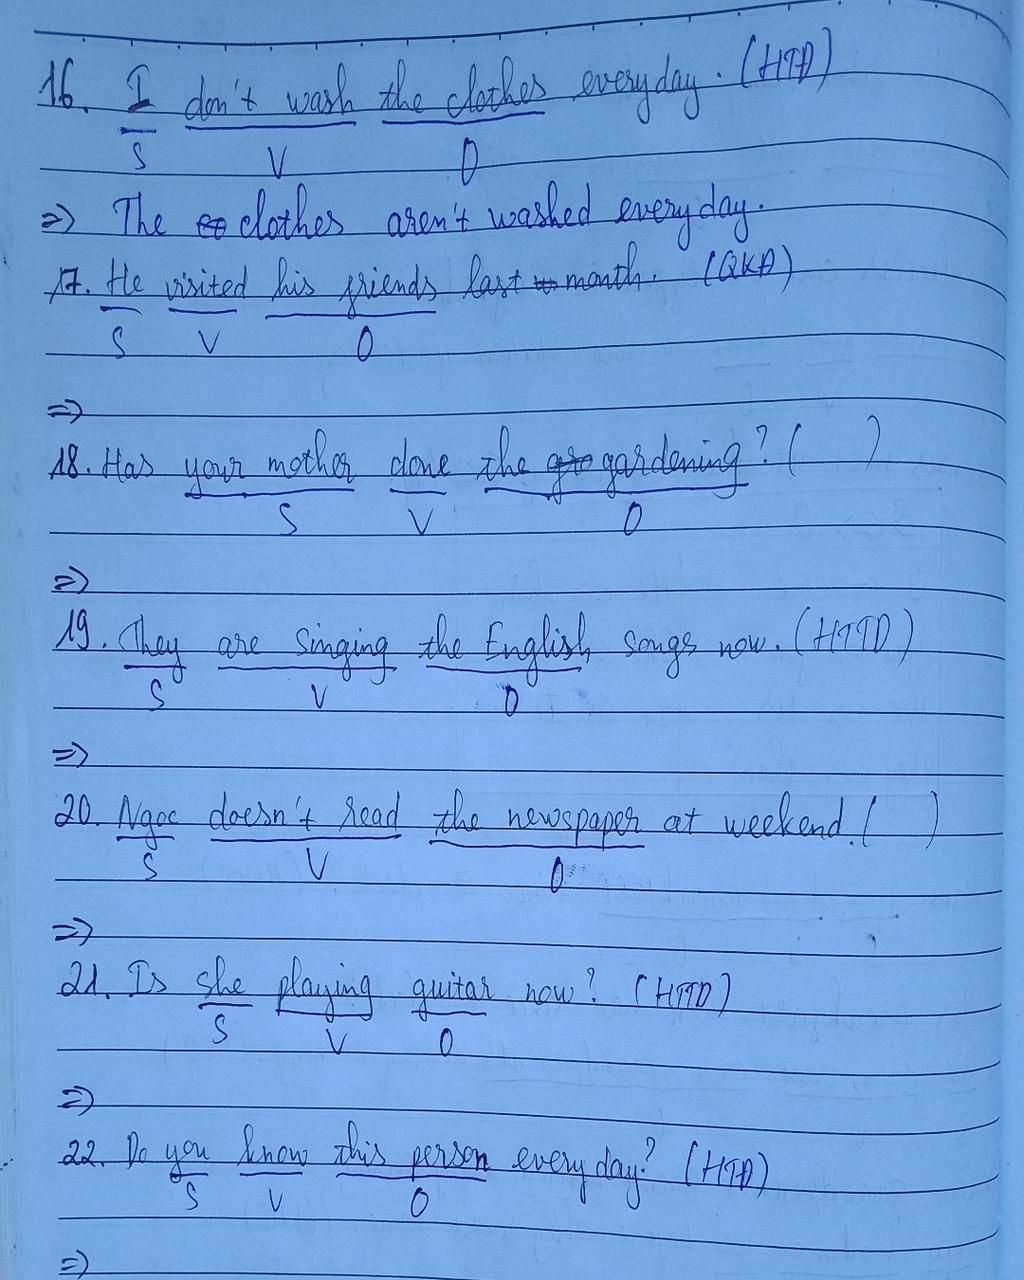 16. I don't wash the clothes everyday. (HTĐ)
S V O
=> The clothes aren't washed everyday.
17. He visited his friends last month. (QKĐ)
S V O
=>
18. Has your mother done the gardening? ( )
S V O
=>
19. They are singing the English songs now. (HTTD)
S V O
=>
20. Ngoc doesn't read the newspaper at weekend. ( )
S V O
=>
21. Is she playing guitar now? (HTTD)
S V O
=>
22. Do you know this person everyday? (HTĐ)
S V O
=>